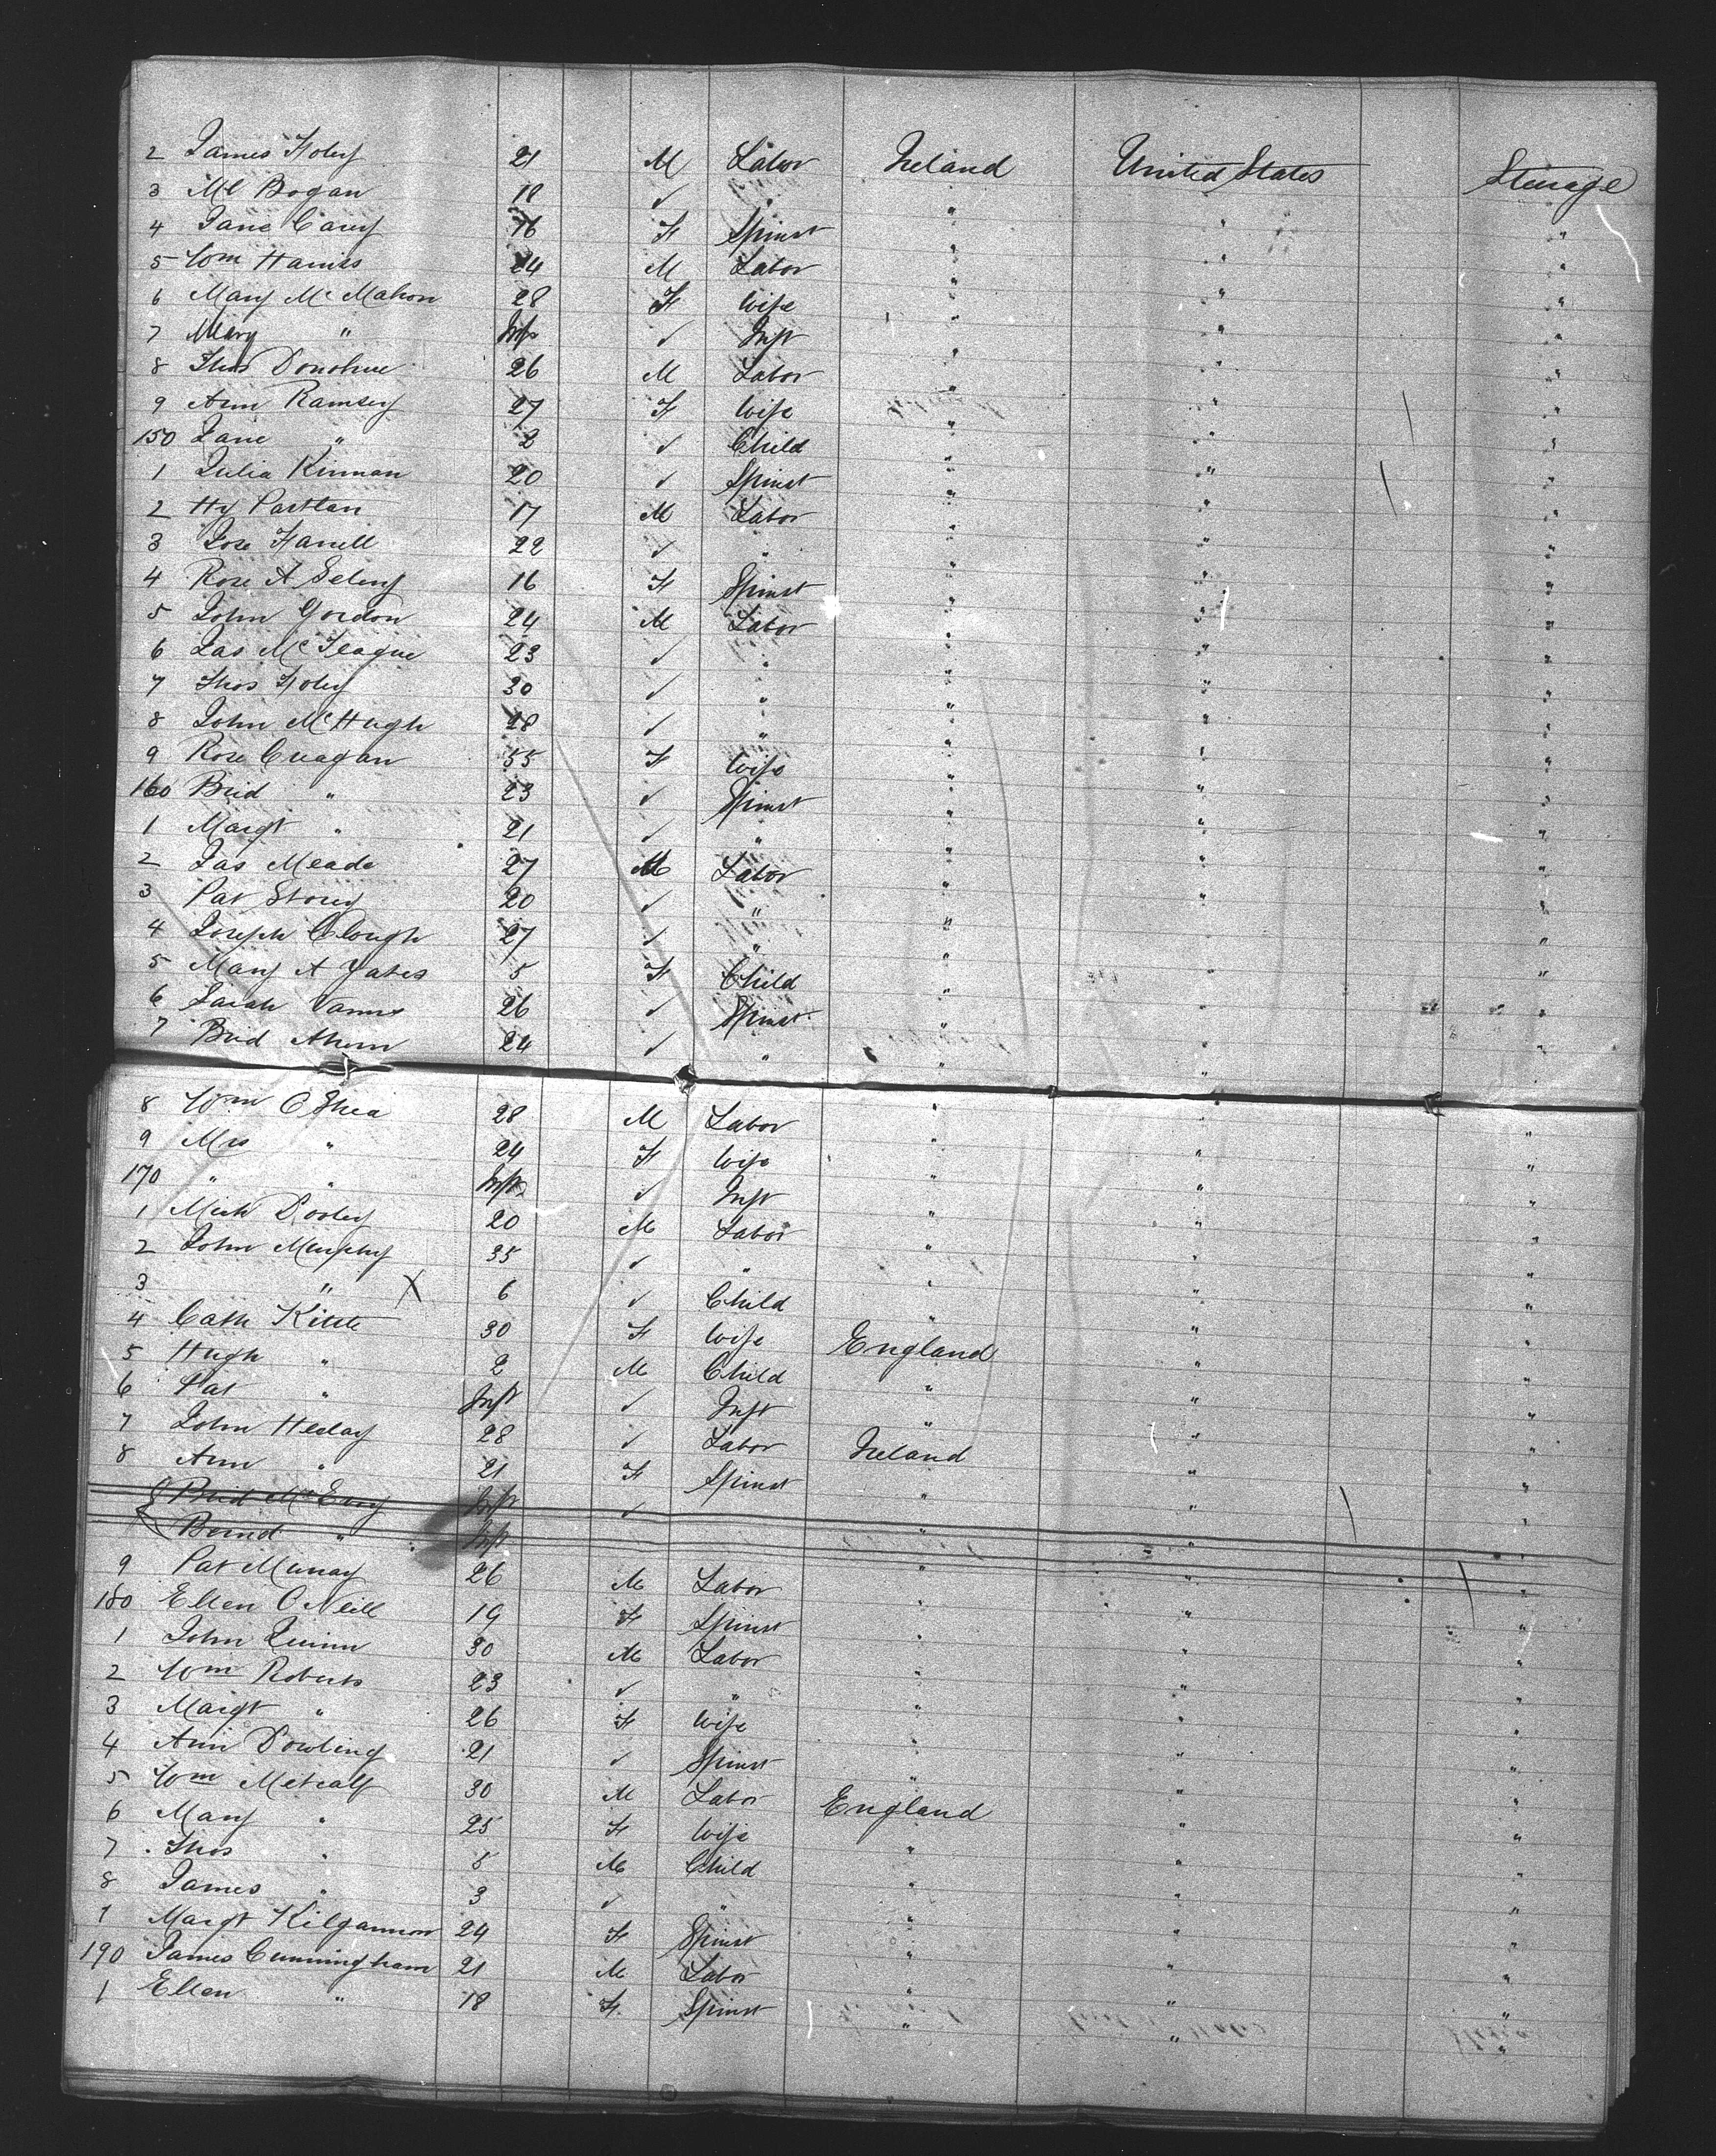 2 James Foley 21 M Labor Ireland United States Steerage
3 Ml Bogan 18 ✓ " " " "
4 Jane Carey 16 F Spinst " " "
5 Wm Harris 24 M Labor " " "
6 Mary McMahon 28 F Wife " " "
7 Mary " Inft ✓ Inft " " "
8 Thos Donohue 26 M Labor " " "
9 Ann Ramsey 27 F Wife " " "
150 Jane " 2 ✓ Child " " "
1 Julia Kinnan 20 ✓ Spinst " " "
2 Hy Partlan 17 M Labor " " "
3 Jos Farrell 22 ✓ " " " "
4 Rose A 16 F Spinst " " "
5 John Gordon 24 M Labor " " "
6 Jas McTeague 23 ✓ " " " "
7 Thos Foley 30 ✓ " " " "
8 John McHugh 28 ✓ " " " "
9 Rose Creagan 55 F Wife " " "
160 Brid " 23 ✓ Spinst " " "
1 Margt " 21 ✓ " " " "
2 Jas Meade 27 M Labor " " "
3 Pat Storey 20 ✓ " " " "
4 Joseph Clough 27 ✓ " " " "
5 Mary A Yates 5 F Child " " "
6 Sarah 26 ✓ Spinst " " "
7 Brid Ahern 24 ✓ " " " "
8 Wm O Shea 28 M Labor " " "
9 Mrs " 24 F Wife " " "
170 " " Inft ✓ Inft " " "
1 Mick Dooley 20 M Labor " " "
2 John Murphy 35 ✓ " " " "
3 " X 6 ✓ Child " " "
4 Cath 30 F Wife England " "
5 Hugh " 2 M Child " " "
6 Pat " Inft ✓ Inft " " "
7 John Healey 28 ✓ Labor Ireland " "
8 Ann " 21 F Spinst " " "
Brid McEvoy Inft ✓ " "
Bernd " Inft " " "
9 Pat Murray 26 M Labor " " "
180 Ellen O Neill 19 F Spinst " " "
1 John Quinn 30 M Labor " " "
2 Wm Roberts 23 ✓ " " " "
3 Margt " 26 F Wife " " "
4 Ann Dowling 21 ✓ Spinst " " "
5 Wm Metcalf 30 M Labor England " "
6 Mary " 25 F Wife " " "
7 Thos " 8 M Child " " "
8 James " 3 ✓ " " " "
9 Margt Kilgannon 24 F Spinst " " "
190 James Cunningham 21 M Labor " " "
1 Ellen " 18 F Spinst " " "